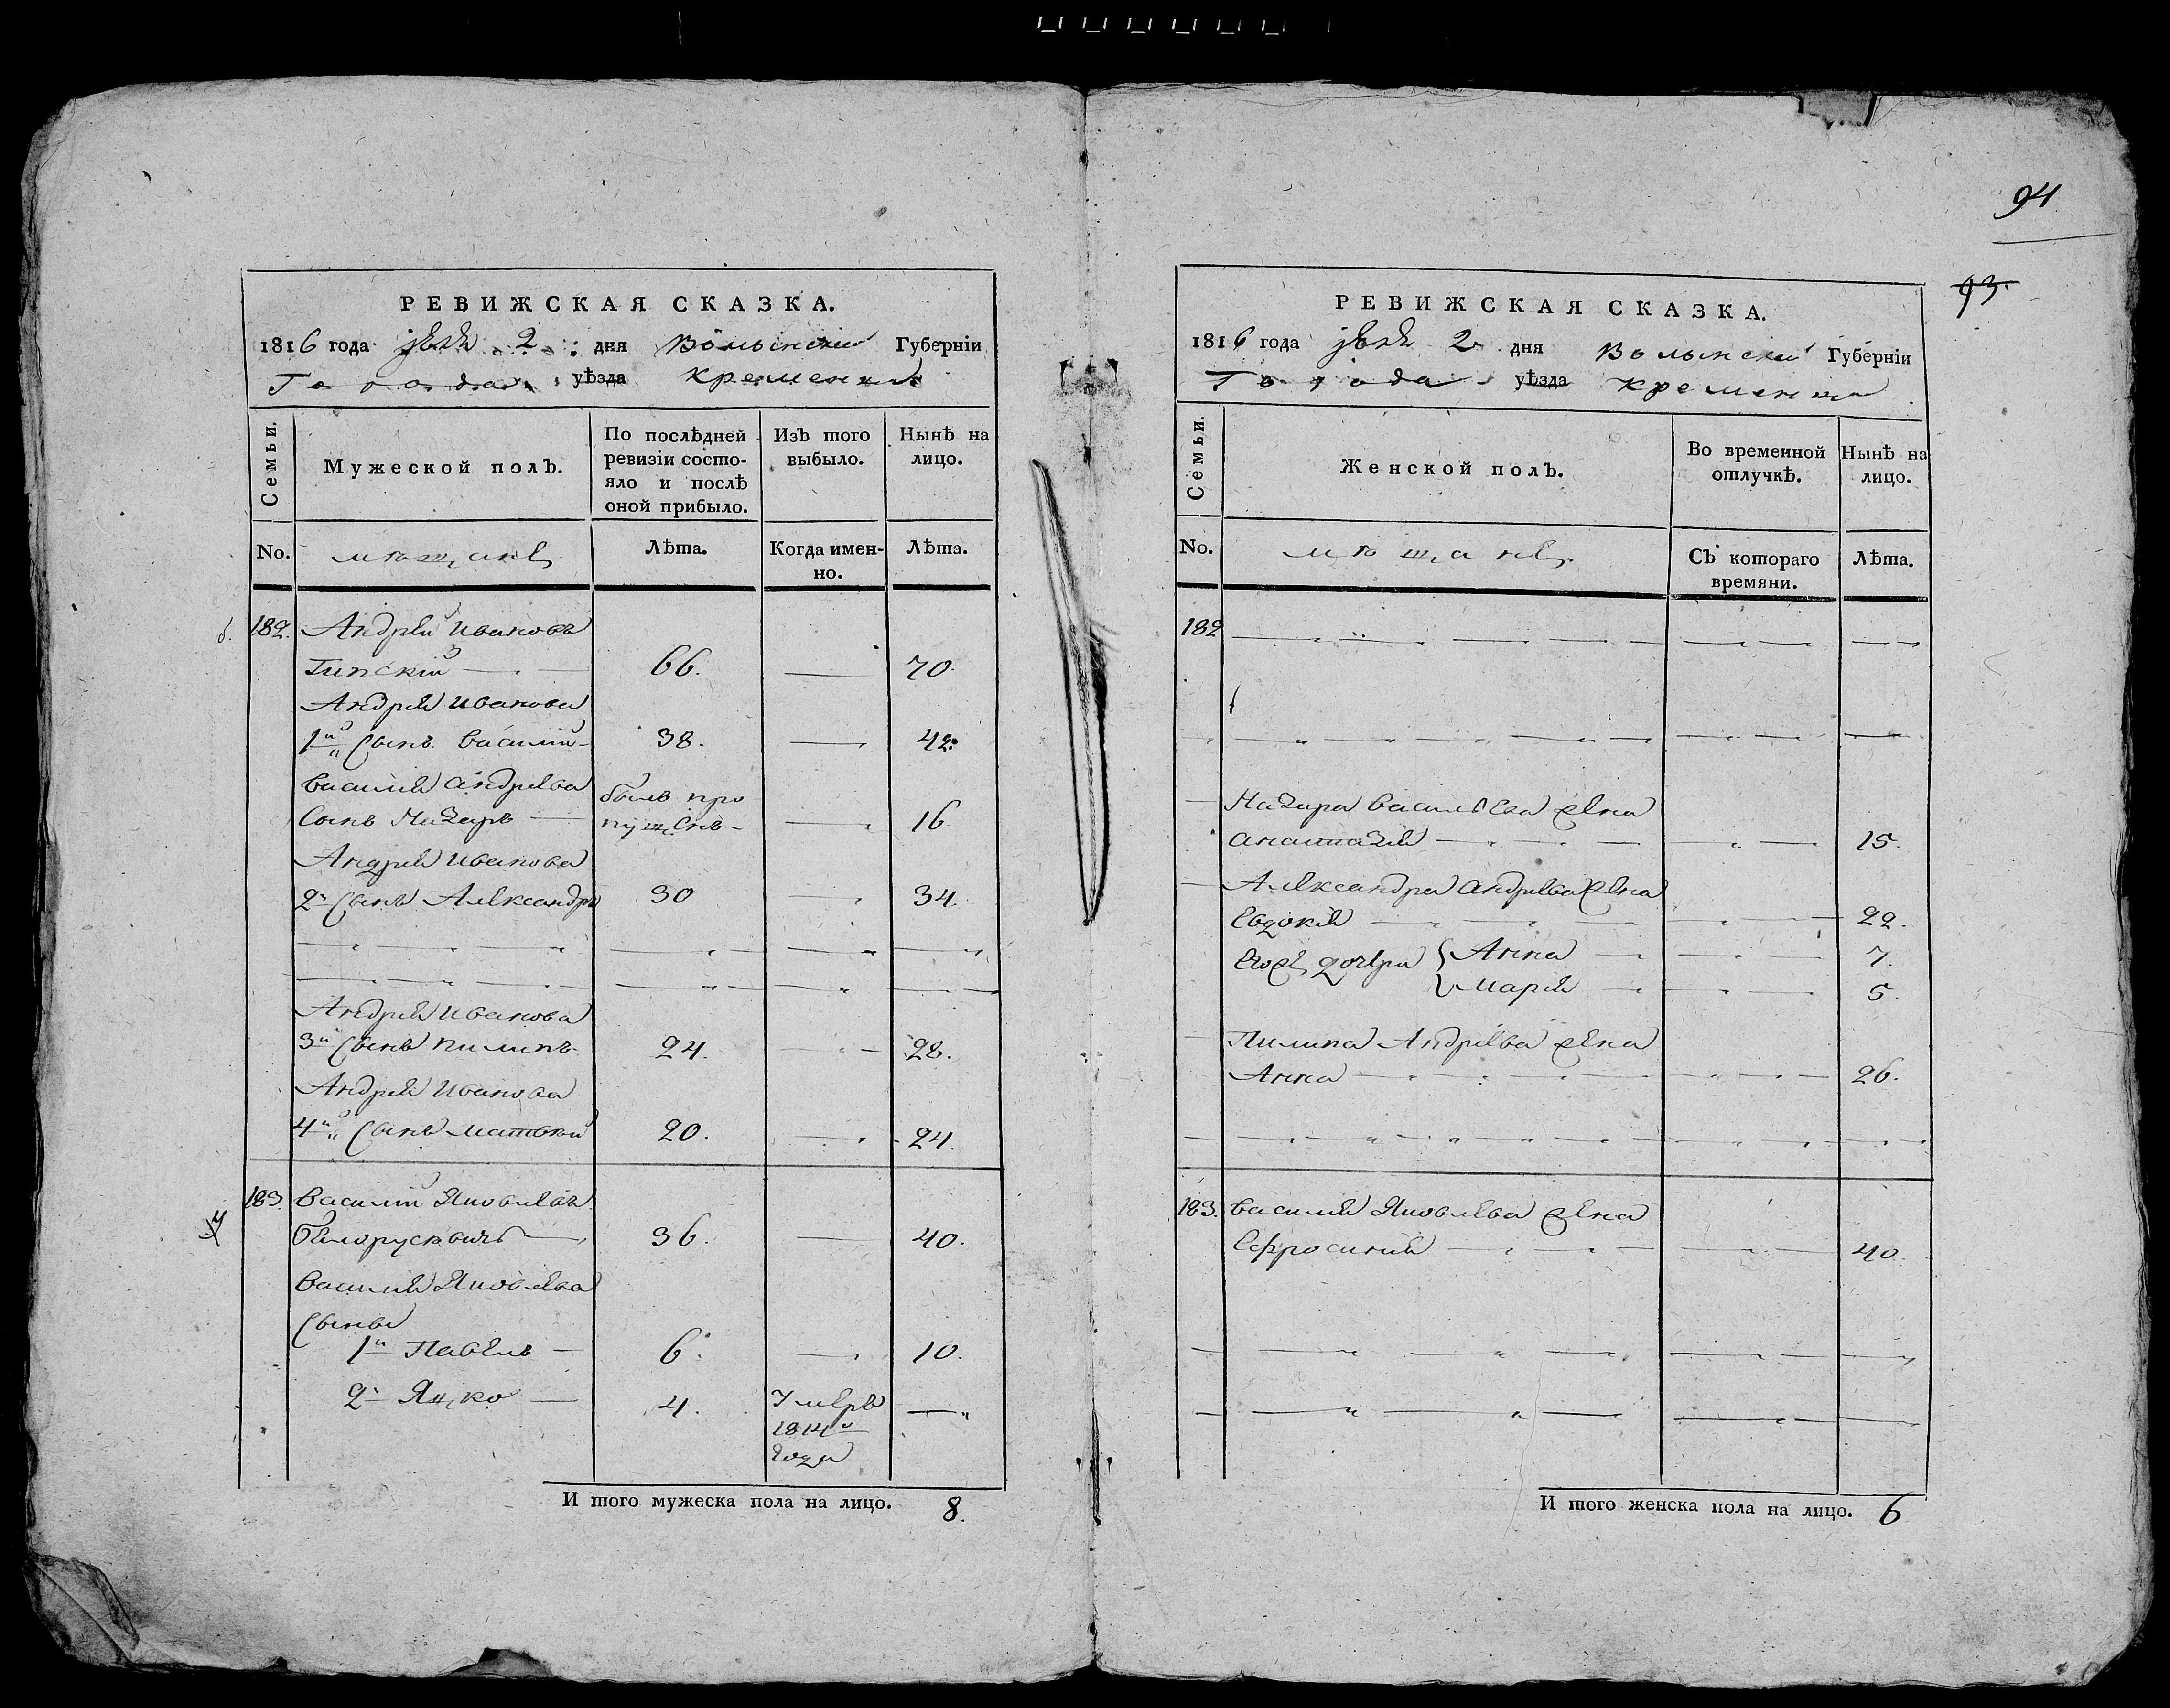 94
93.
РЕВИЖСКАЯ СКАЗКА.
1816 года 2 дня Волынскій Губерніи
Города уѣзда кременца
Семьи.
Мужеской полъ.
По послѣдней ревизіи состояло и послѣ оной прибыло.
Изъ того выбыло.
Нынѣ на лицо.
No.
мѣщанѣ
Лѣта.
Когда именно.
Лѣта.
182. Андрей Ивановъ
66. 70.
Андрея Иванова
1й сынъ Василій 38. 42.
Василія Андрѣева былъ про
сынъ Назаръ пущенъ 16
Андрея Иванова
2й сынъ Александръ 30 34.
Андрея Иванова
3й сынъ Пилипъ 24. 28.
Андрея Иванова
4й сынъ Матвѣй 20. 24.
183. Василій Яковлевъ
Белорускевичъ 36. 40.
Василія Яковлева
сыны
1й Павелъ 6. 10.
2й Яцко 4. Умеръ
1814го
года
И того мужеска пола на лицо. 8.
РЕВИЖСКАЯ СКАЗКА.
1816 года 2 дня Волынскій Губерніи
Города уѣзда кременца
Семьи.
Женской полъ.
Во временной отлучкѣ.
Нынѣ на лицо.
No.
мѣщанѣ
Съ котораго времяни.
Лѣта.
182
Назара Васильева жена
Анастазия 15.
Александра Андрѣева жена
Евдокия 22.
Его же дочери { Анна 7.
Мария 5.
Пилипа Андрѣева жена
Анна 26.
183. Василия Яковлева жена
Ефросиния 40
И того женска пола на лицо. 6